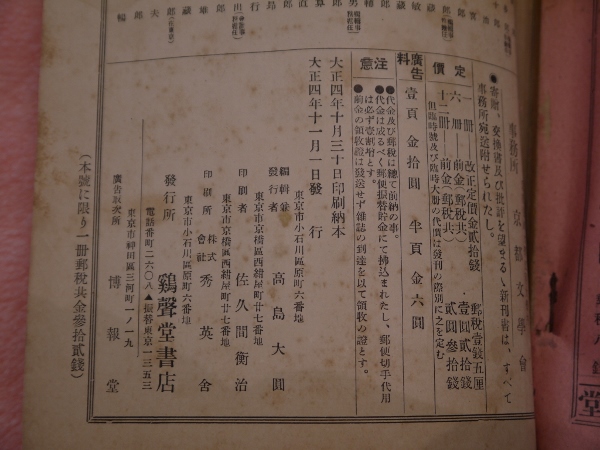 事務所 京都文學會
●寄贈、交換書及び批評を望まるゝ新刊書は、すべて
事務所宛送附せられたし。
定價
一冊 改正定價金貳拾錢 郵税壹錢五厘
六冊―前金(郵税共) 壹圓貳拾錢
十二冊―前金(郵税共) 貳圓參拾錢
但臨時號及び臨時大冊の代價は發刊の際別に之を定む
廣告料
壹頁 金拾圓 半頁 金六圓
注意
●代金及び郵税は總て前納の事。
●代金は成るべく郵便振替貯金にて拂込まれたし、郵便切手代用
は必ず壹割增とす。
●前金の領收證は發送せず雜誌の到達を以て領收の證とす。
大正四年十月三十日印刷納本
大正四年十一月一日發行
東京市小石川區原町六番地
編輯兼
發行者 高島大圓
東京市京橋區西紺屋町廿七番地
印刷者 佐久間衡治
東京市京橋區西紺屋町廿七番地
印刷所 株式會社 秀英舍
東京市小石川區原町六番地
發行所 鷄聲堂書店
電話番町二六〇八▲振替東京一三五三
東京市神田區三河町一ノ一九
廣告取次所 博報堂
(本號に限り一冊郵税共金參拾貳錢)
堂